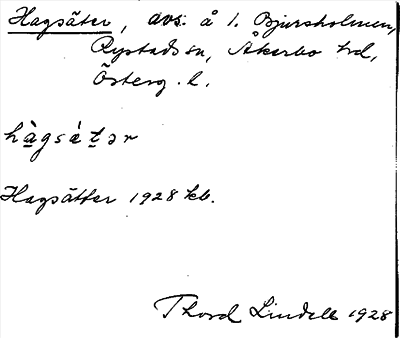 Hagsäter, avs. å 1. Bjursholmen,
Rystads sn, Åkerbo hd,
Österg. l.
hàgsátər
Hagsätter 1928 kb.
Thord Lindell 1928